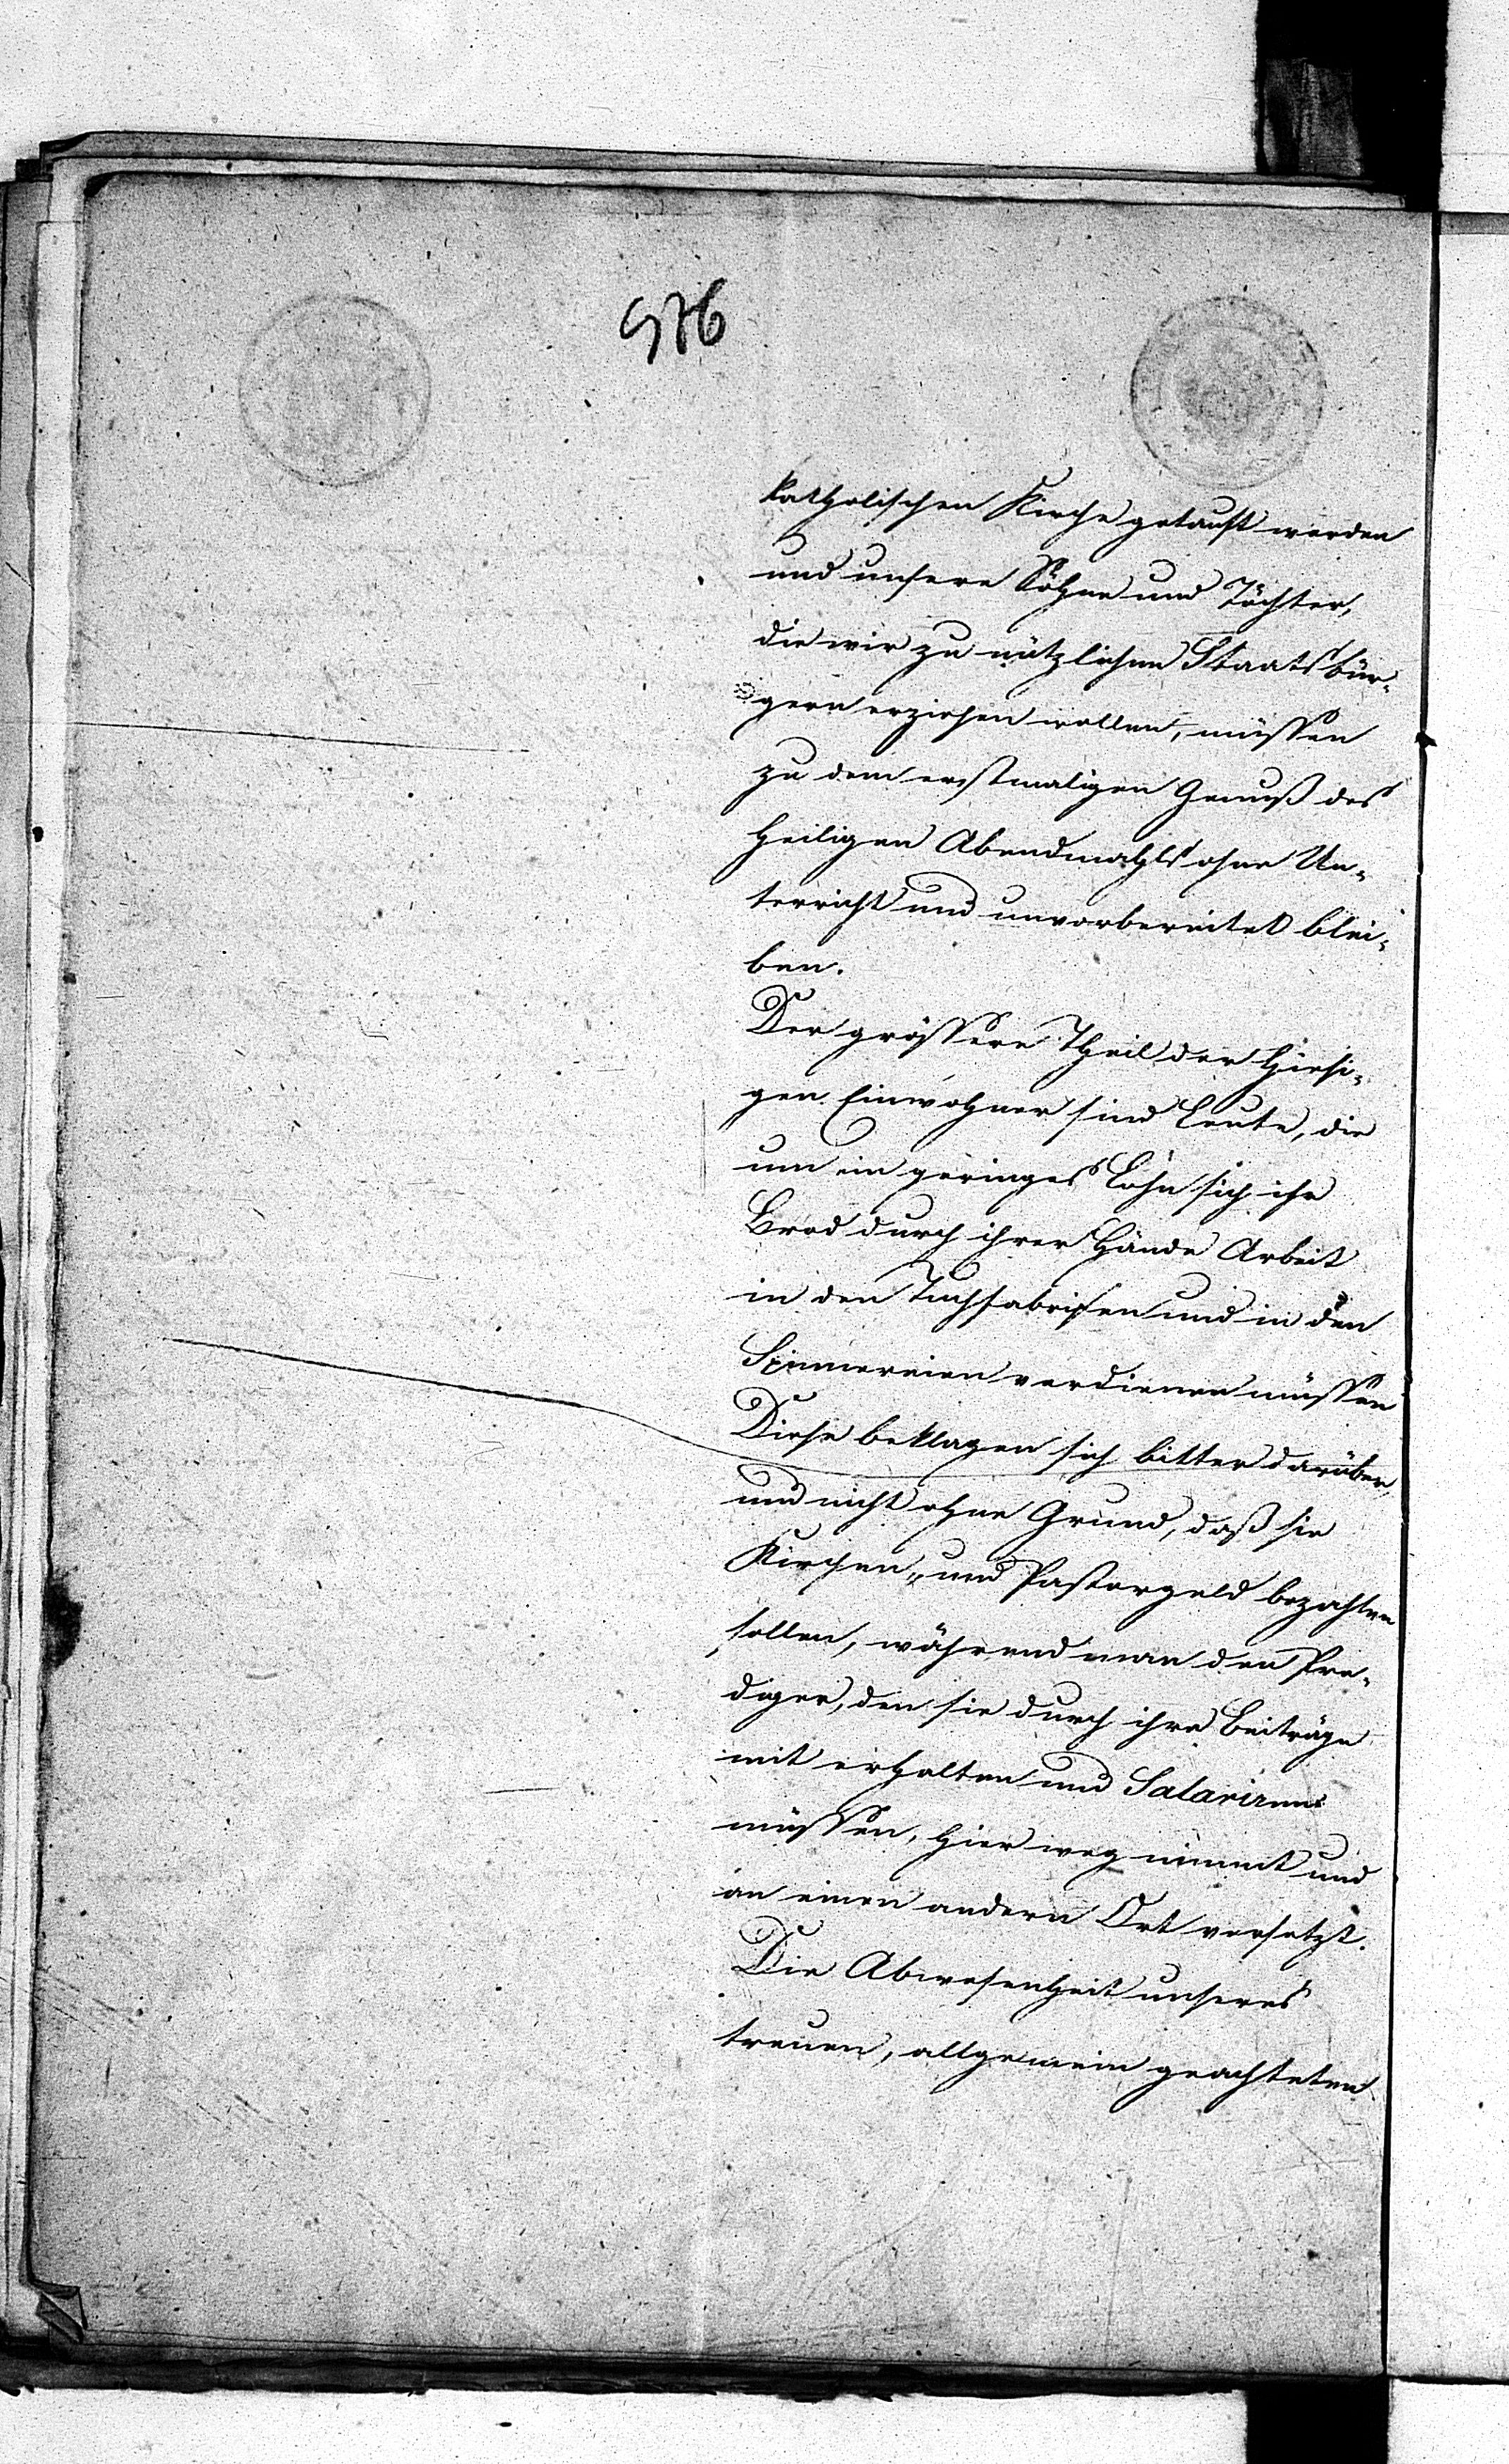 576
katholischen Kirche getauft werden
und unsere Söhne und Töchter,
die wir zu nützlichen Staatsbür-
gern erziehen wollen, müssen
zu dem erstmaligen Genuß des
heiligen Abendmahls ohne Un-
terricht und unvorbereitet blei-
ben.
Der grössere Theil der hiesi-
gen Einwohner sind Leute, die
um ein geringes Lohn sich ihr
Brod durch ihrer Hände Arbeit
in den Tuchfabriken und in den
Spinnereien verdienen müssen
Diese beklagen sich bitter darüber,
und nicht ohne Grund, daß sie
Kirchen- und Pastorgeld bezahlen
sollen, während man den Pre-
diger, den sie durch ihre Beiträge
mit erhalten und Salariren
müssen, hier weg nimmt und
an einen andern Ort versetzt.
Die Abwesenheit unseres
treuen, allgemein geachteten